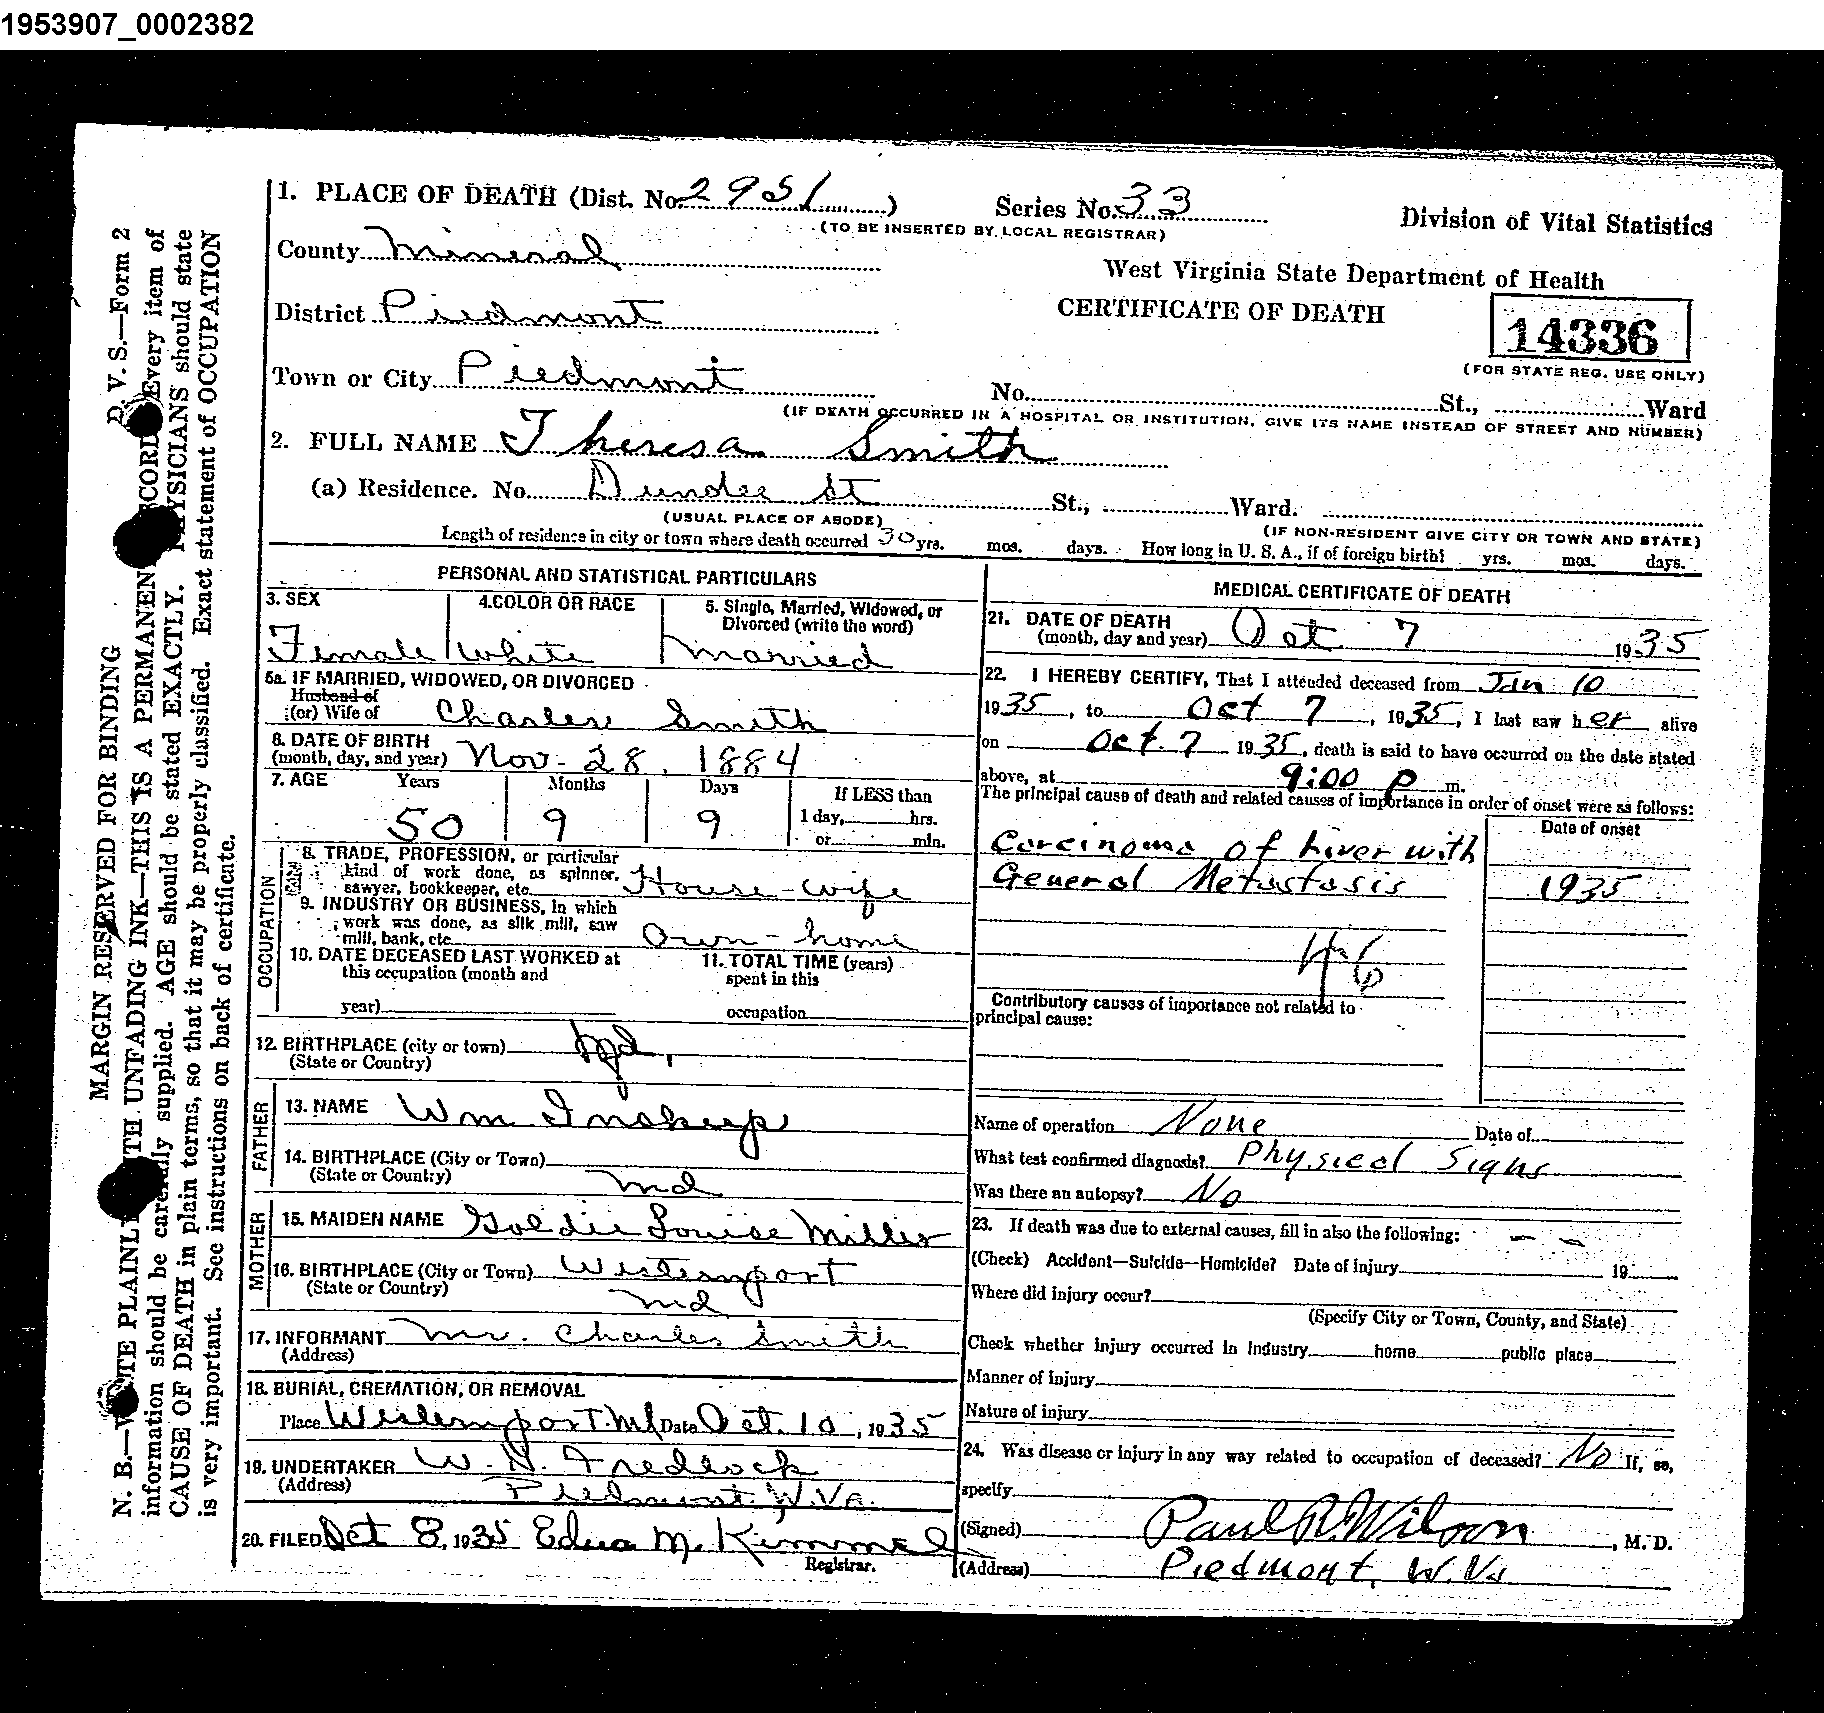 1953907_0002382
1. PLACE OF DEATH (Dist. No. 2951) Series No. 33
(TO BE INSERTED BY LOCAL REGISTRAR)
Division of Vital Statistics
County Mineral
West Virginia State Department of Health
District Piedmont
CERTIFICATE OF DEATH
14336
(FOR STATE REG. USE ONLY)
Town or City Piedmont No. St., Ward
(IF DEATH OCCURRED IN A HOSPITAL OR INSTITUTION, GIVE ITS NAME INSTEAD OF STREET AND NUMBER)
2. FULL NAME Theresa Smith
(a) Residence. No. Dundee St St., Ward.
(USUAL PLACE OF ABODE) (IF NON-RESIDENT GIVE CITY OR TOWN AND STATE)
Length of residence in city or town where death occurred 30 yrs. mos. days. How long in U. S. A., if of foreign birth? yrs. mos. days.
PERSONAL AND STATISTICAL PARTICULARS
3. SEX 4. COLOR OR RACE 5. Single, Married, Widowed, or
Divorced (write the word)
Female White Married
5a. IF MARRIED, WIDOWED, OR DIVORCED
Husband of
(or) Wife of Charles Smith
6. DATE OF BIRTH
(month, day, and year) Nov - 28, 1884
7. AGE Years Months Days If LESS than
50 9 9 1 day, hrs.
or min.
OCCUPATION
8. TRADE, PROFESSION, or particular
kind of work done, as spinner,
sawyer, bookkeeper, etc. House-wife
9. INDUSTRY OR BUSINESS, in which
work was done, as silk mill, saw
mill, bank, etc. Own - home
10. DATE DECEASED LAST WORKED at
this occupation (month and
year)
11. TOTAL TIME (years)
spent in this
occupation
12. BIRTHPLACE (city or town) Md.
(State or Country)
FATHER
13. NAME Wm Inskeep
14. BIRTHPLACE (City or Town)
(State or Country) Md
MOTHER
15. MAIDEN NAME Goldie Louise Miller
16. BIRTHPLACE (City or Town) Westernport
(State or Country) Md
17. INFORMANT Mr. Charles Smith
(Address)
18. BURIAL, CREMATION, OR REMOVAL
Place Westernport. Md Date Oct. 10, 1935
19. UNDERTAKER W. H. Fredlock
(Address) Piedmont. W. Va.
20. FILED Oct 8, 1935 Edna M. Kimmel
Registrar.
MEDICAL CERTIFICATE OF DEATH
21. DATE OF DEATH
(month, day and year) Oct 7 1935
22. I HEREBY CERTIFY, That I attended deceased from Jan 10
1935, to Oct 7, 1935, I last saw her alive
on Oct. 7 1935, death is said to have occurred on the date stated
above, at 9:00 P m.
The principal cause of death and related causes of importance in order of onset were as follows:
Date of onset
Carcinoma of Liver with
General Metastasis 1935
Contributory causes of importance not related to
principal cause:
Name of operation None Date of
What test confirmed diagnosis? Physical Signs
Was there an autopsy? No
23. If death was due to external causes, fill in also the following: - -
(Check) Accident—Suicide—Homicide? Date of injury 19
Where did injury occur?
(Specify City or Town, County, and State)
Check whether injury occurred in industry home public place
Manner of injury
Nature of injury
24. Was disease or injury in any way related to occupation of deceased? No If, so,
specify
(Signed) Paul R. Wilson, M. D.
(Address) Piedmont, W. Va
D. V. S.—Form 2
MARGIN RESERVED FOR BINDING
N. B.—WRITE PLAINLY WITH UNFADING INK—THIS IS A PERMANENT RECORD. Every item of
information should be carefully supplied. AGE should be stated EXACTLY. PHYSICIANS should state
CAUSE OF DEATH in plain terms, so that it may be properly classified. Exact statement of OCCUPATION
is very important. See instructions on back of certificate.